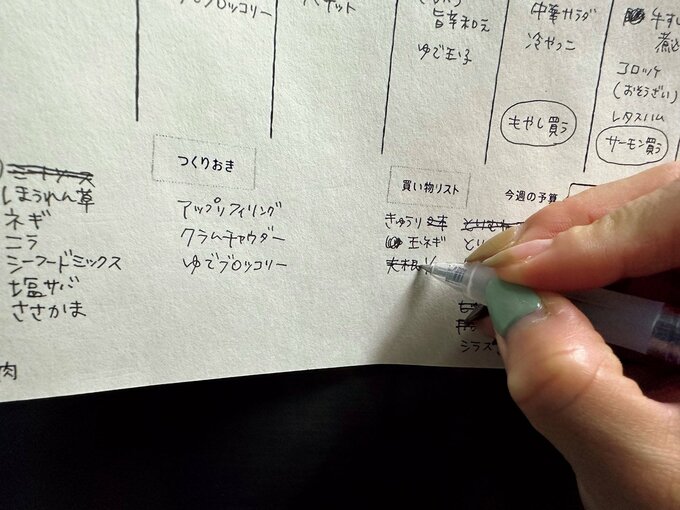 ブロッコリー
旨辛和え
ゆで玉子
中華サラダ
冷やっこ
もやし買う
牛す
煮込
コロッケ
(おそうざい)
レタスハム
サーモン買う
ほうれん草
ネギ
ニラ
シーフードミックス
塩サバ
ささかま
肉
つくりおき
アップリフィリング
クラムチャウダー
ゆでブロッコリー
買い物リスト
今週の予算
きゅうり
玉ネギ
大根
シラス